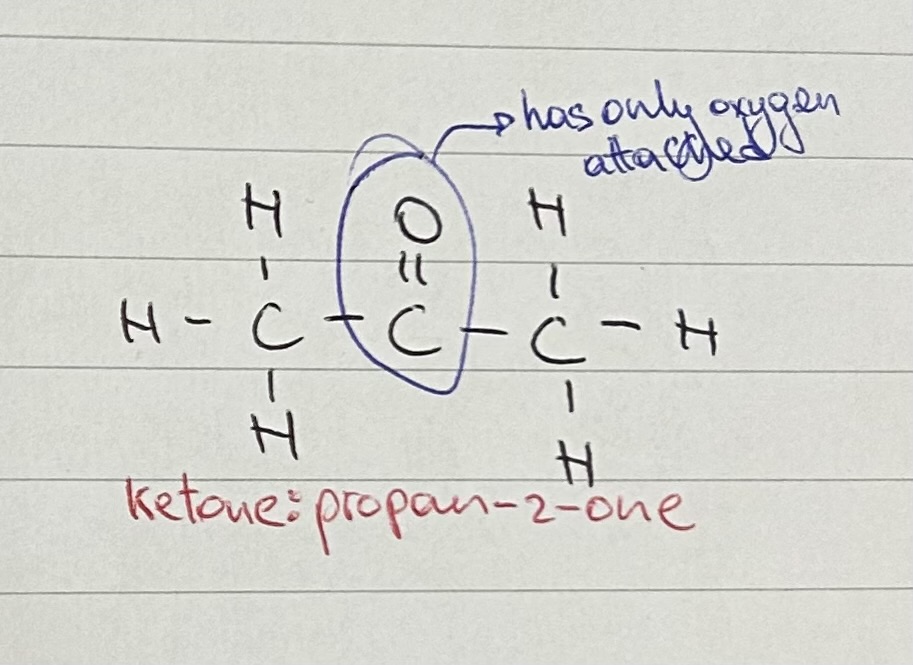 has only oxygen
attached
H O H
| || |
H - C - C - C - H
| |
H H
ketone: propan-2-one